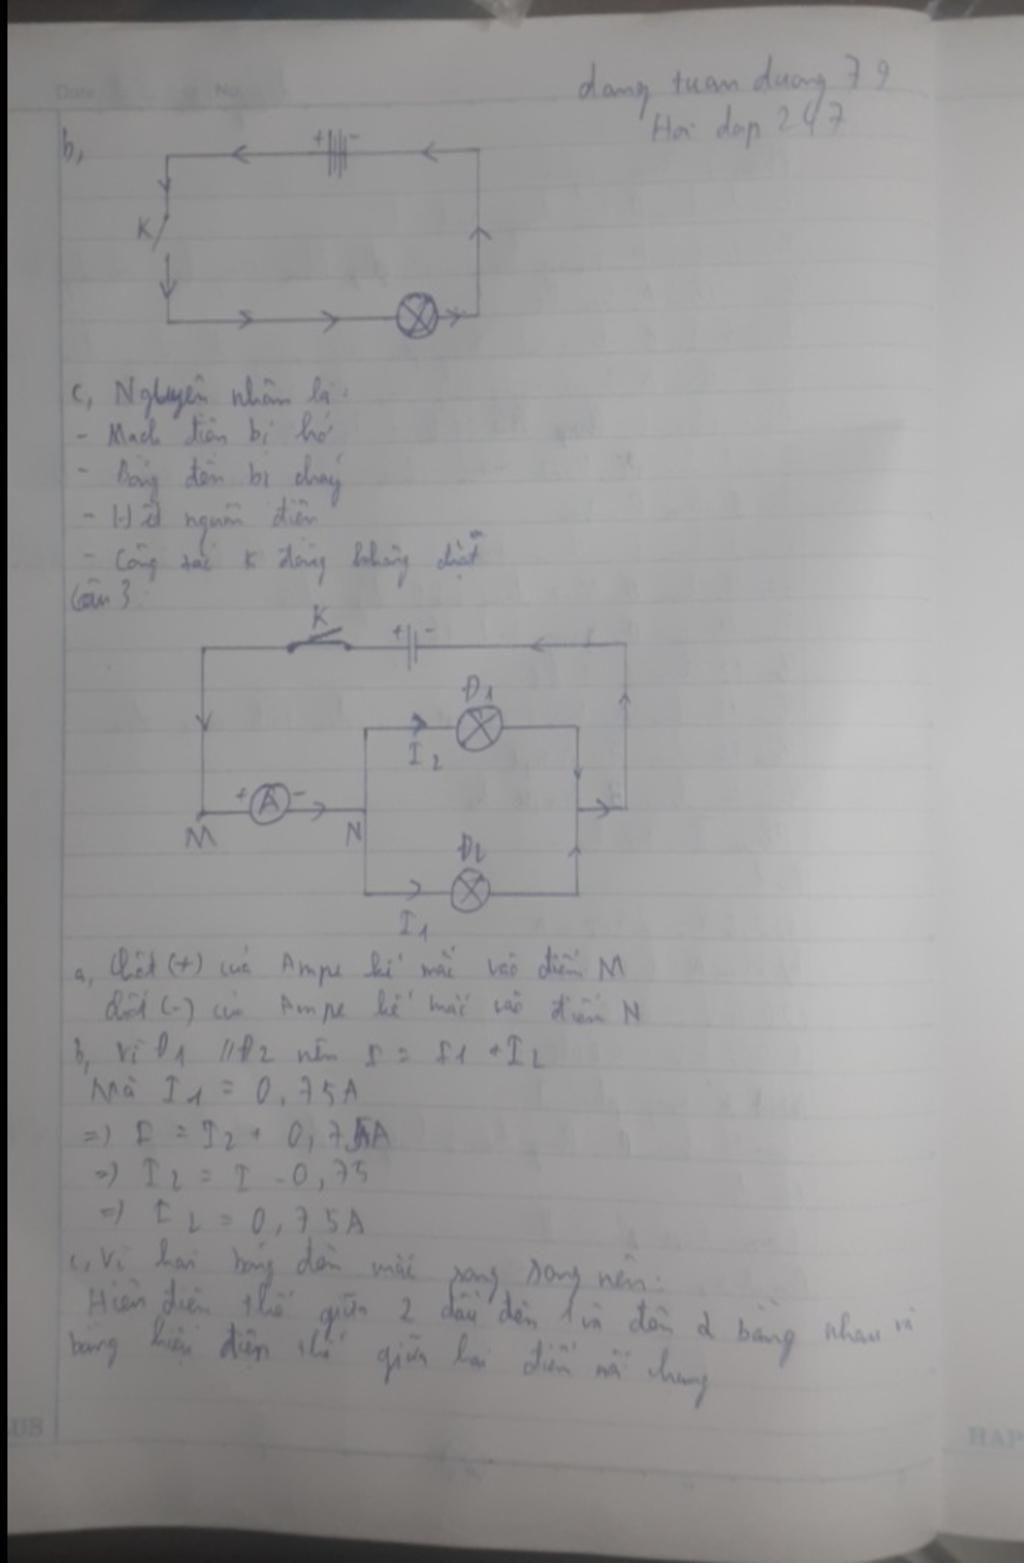 Date No
dang tuan duong 79
Hoi dap 247
b,
+ -
K
c, Nguyên nhân là:
- Mạch điện bị hở
- Bóng đèn bị cháy
- Hết nguồn điện
- Công tắc K đóng không chặt
Câu 3
K
+ -
Đ1
I2
+ A -
M N
Đ2
I1
a, Chốt (+) của Ampe kế mắc vào điểm M
Chốt (-) của Ampe kế mắc vào điểm N
b, Vì Đ1 // Đ2 nên I = I1 + I2
Mà I1 = 0,75A
=> I = I2 + 0,75A
=> I2 = I - 0,75
=> I2 = 0,75A
c, Vì hai bóng đèn mắc song song nên:
Hiệu điện thế giữa 2 đầu đèn 1 và đèn 2 bằng nhau và
bằng hiệu điện thế giữa hai điểm nối chung
HAP